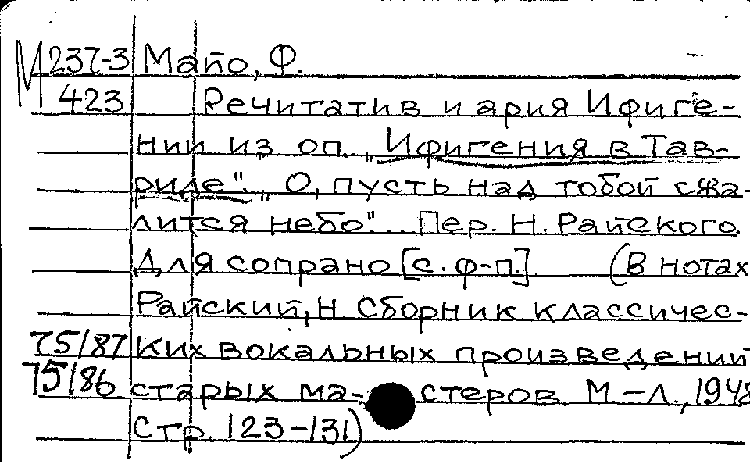 М 237-3 Майо, Ф.
423 Речитатив и ария Ифиге-
нии из оп. „Ифигения в Тав-
риде". „О, пусть над тобой сжа-
лится небо". Пер. Н. Райского.
Для сопрано [с. ф-п.] (В нотах
Райский, Н. Сборник классичес-
75/87 ких вокальных произведений
75/86 старых ма-стеров. М.-Л., 1948
Стр. 123-131)